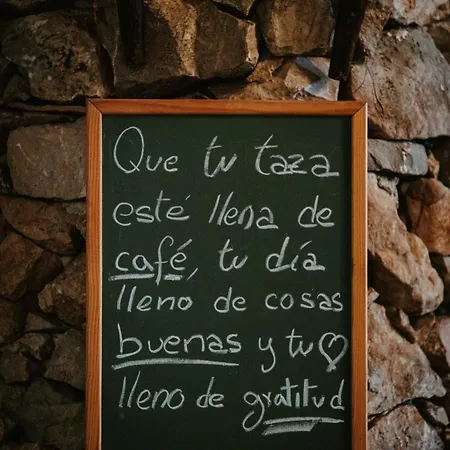 Que tu taza
esté llena de
café, tu día
lleno de cosas
buenas y tu ♡
lleno de gratitud